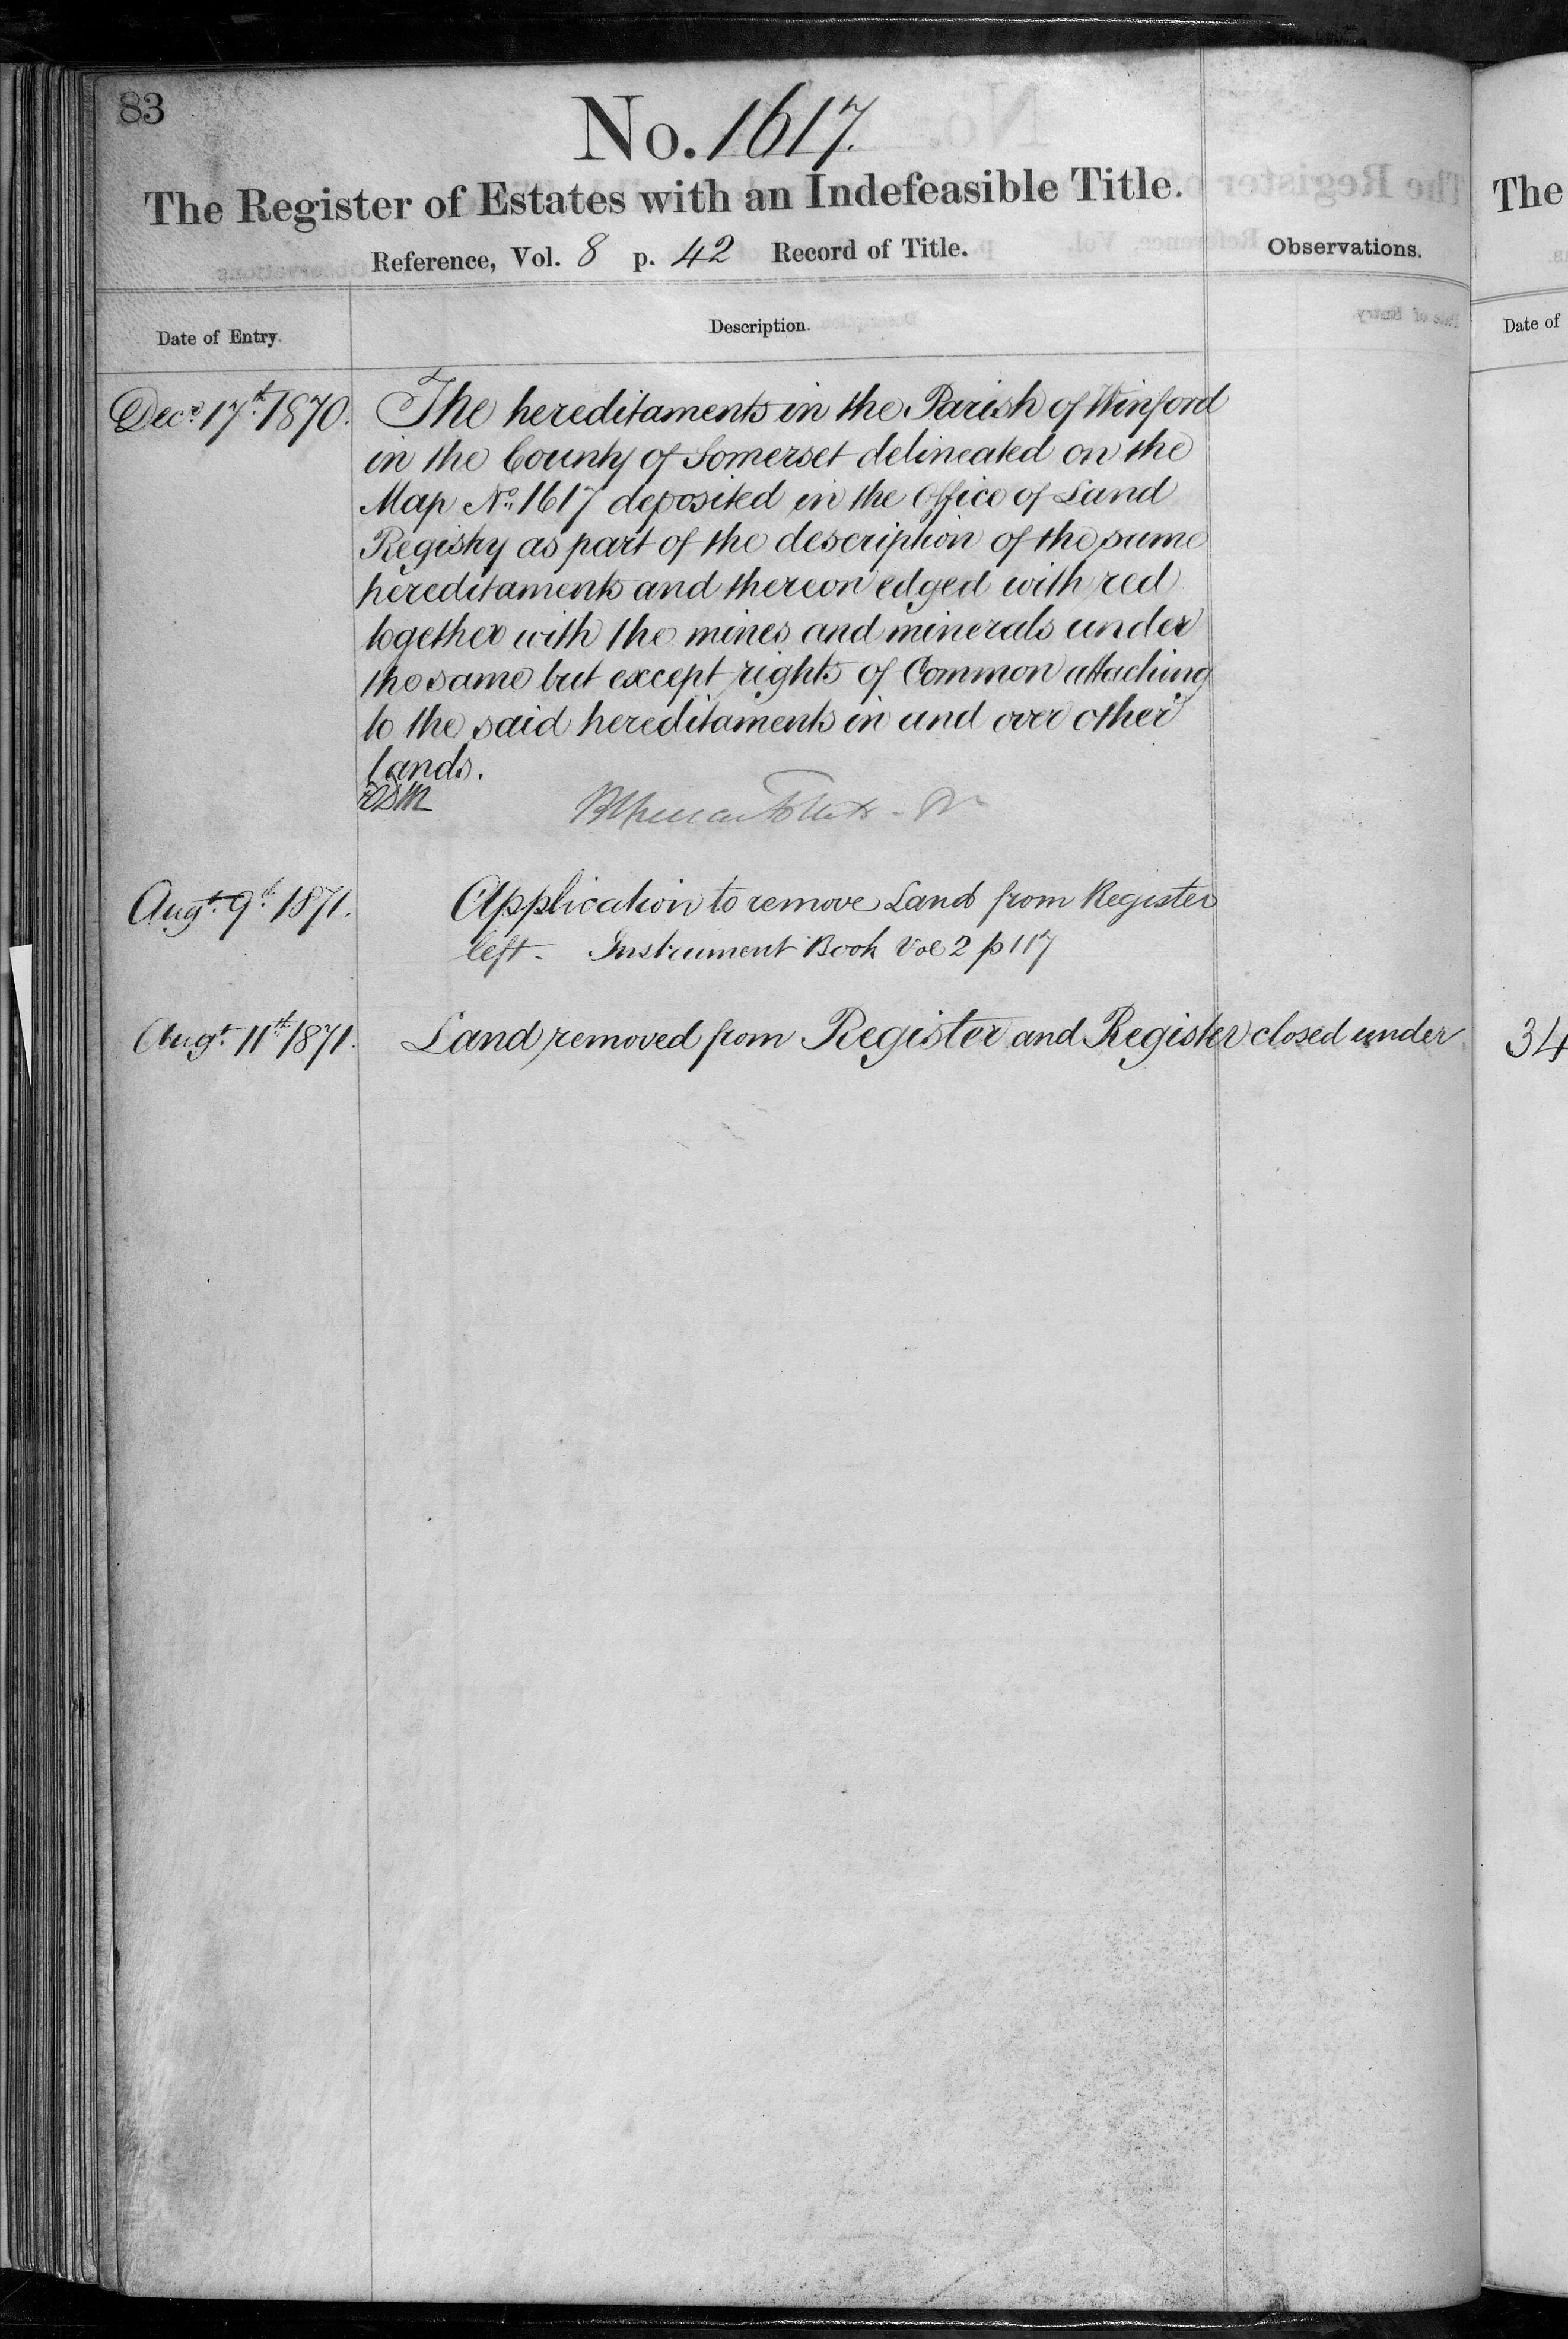 83
No. 1617.
The Register of Estates with an Indefeasible Title.
Reference, Vol. 8 p. 42 Record of Title.
Observations.
Date of Entry.
Description.
Decr. 17th. 1870.
The hereditaments in the Parish of Winford
in the County of Somerset delineated on the
Map No. 1617 deposited in the Office of Land
Registry as part of the description of the same
hereditaments and thereon edged with red
together with the mines and minerals under
the same but except rights of Common attaching
to the said hereditaments in and over other
lands.
Augt. 9th. 1871.
Application to remove Land from Register
left - Instrument Book Vol 2 p 117
Augt. 11th. 1871.
Land removed from Register and Register closed under
The
Date of
34